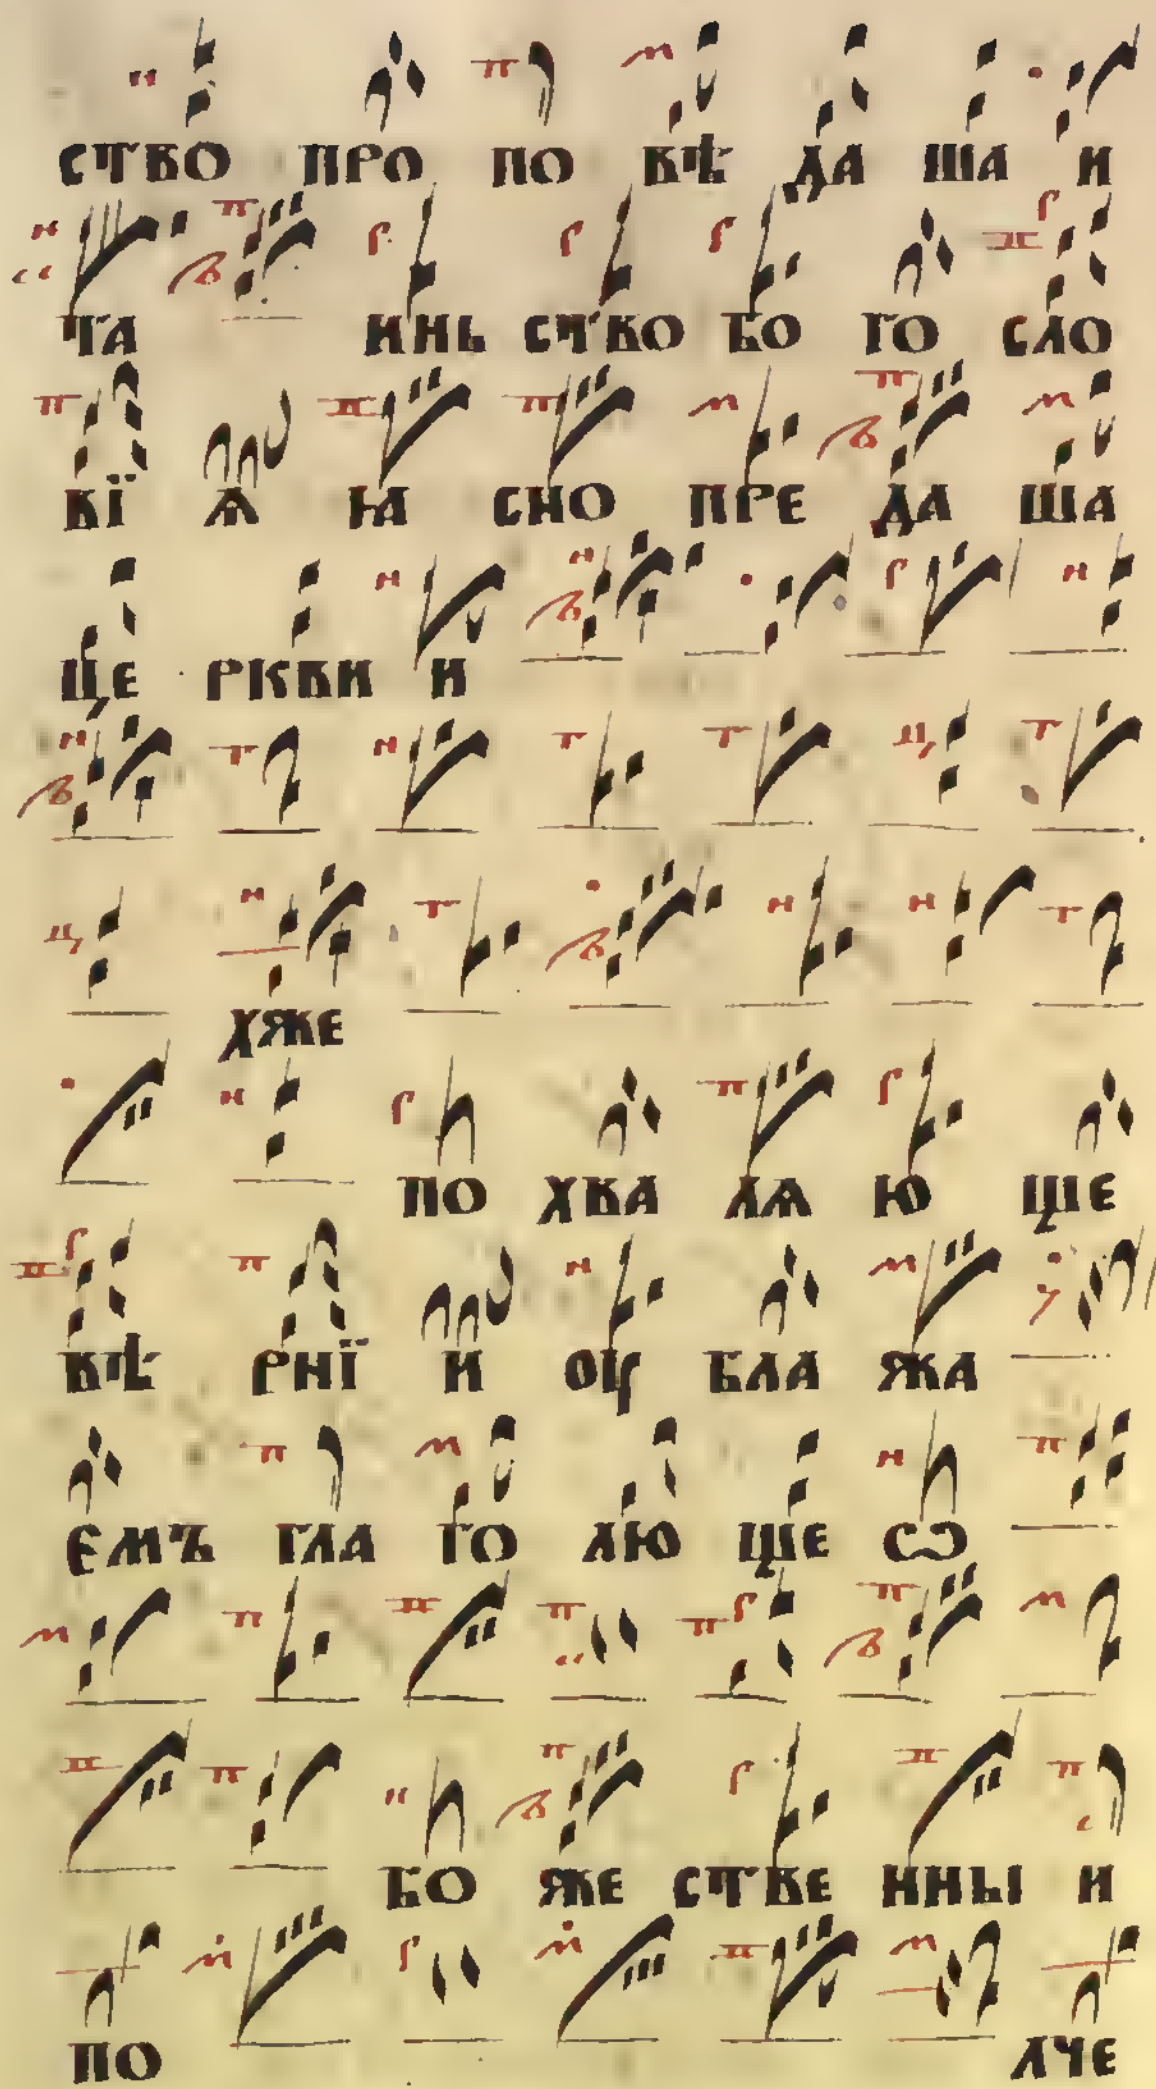 ство про по вѣ да ша и
та инь ство бо го сло
вї ѧ ꙗ сно пре да ша
це ркви и
хже
по хва лѧ ю ще
вѣ рнї и оу бла жа
емъ гла го лю ще ѡ
бо же стве нны и
по лче